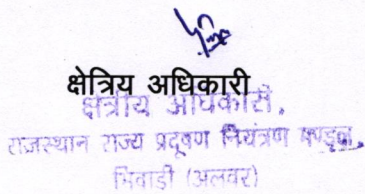 क्षेत्रिय अधिकारी
क्षेत्रीय अधिकारी,
राजस्थान राज्य प्रदूषण नियंत्रण मण्डल,
भिवाडी (अलवर)